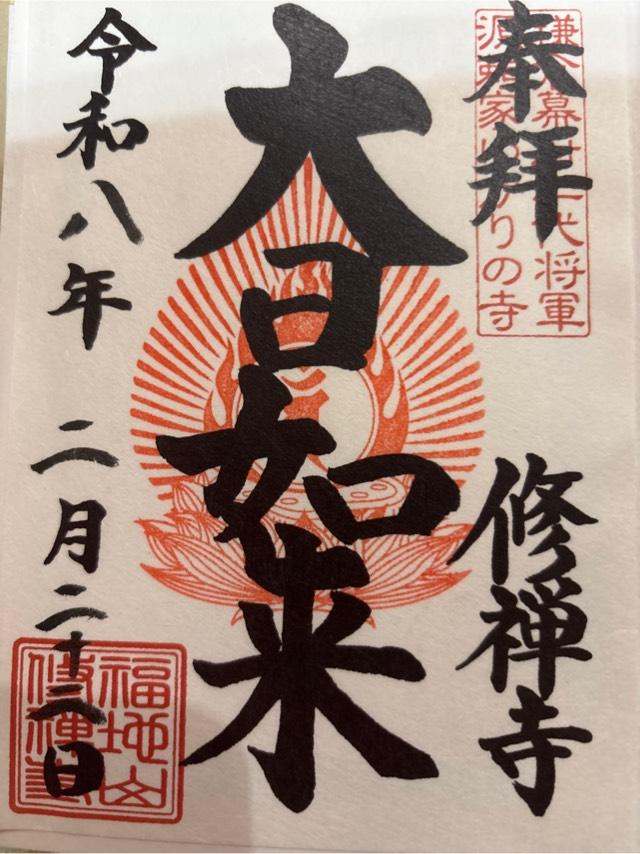 奉拝
鎌倉幕府二代将軍
源頼家ゆかりの寺
修禅寺
大日如来
令和八年 二月二十二日
福地山
修禅寺